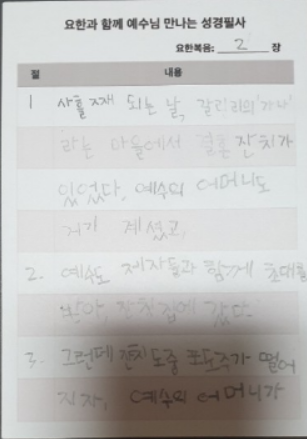 요한과 함께 예수님 만나는 성경필사
요한복음: 2 장
절 내용
1 사흘째 되는 날, 갈리리의 '가나'
라는 마을에서 결혼 잔치가
있었다, 예수의 어머니도
거기 계셨고,
2. 예수도 제자들과 함께 초대를
받아, 잔칫집에 갔다.
3. 그런데 잔치 도중 포도주가 떨어
지자, 예수의 어머니가